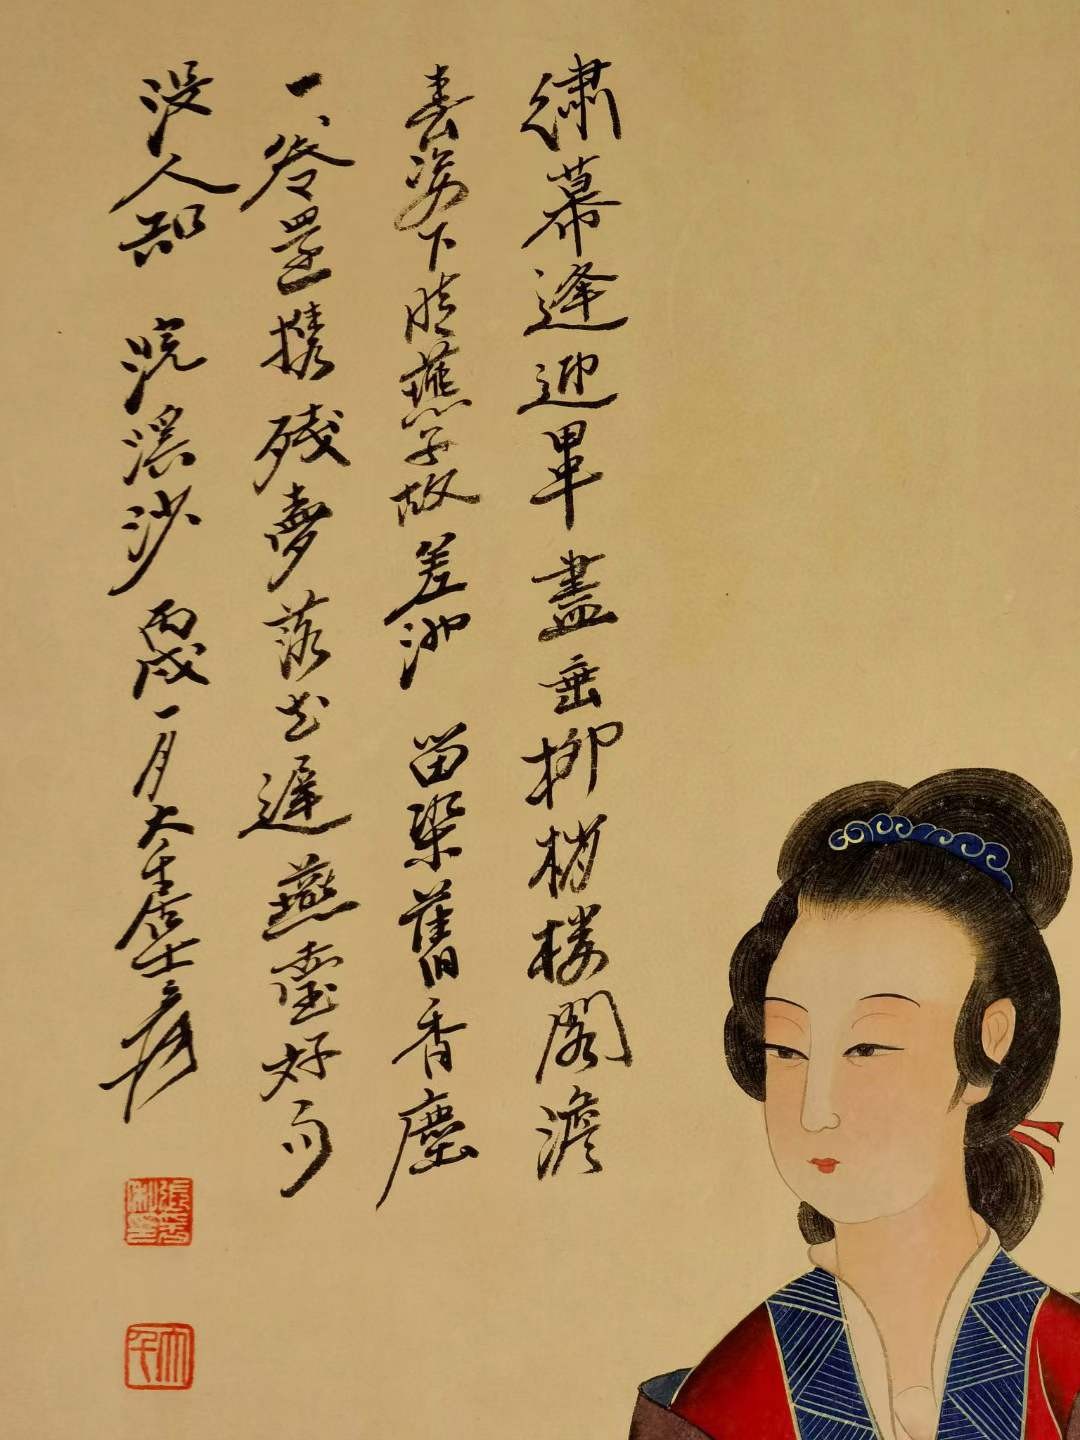 繡幕逢迎畢盡垂柳梢樓閣澹
春姿下晴燕子故差池 留染舊香塵
一還攜殘夢落花遲燕臺好句
没人知 浣溪沙 丙戌一月大千居士爰
張爰私印
大千